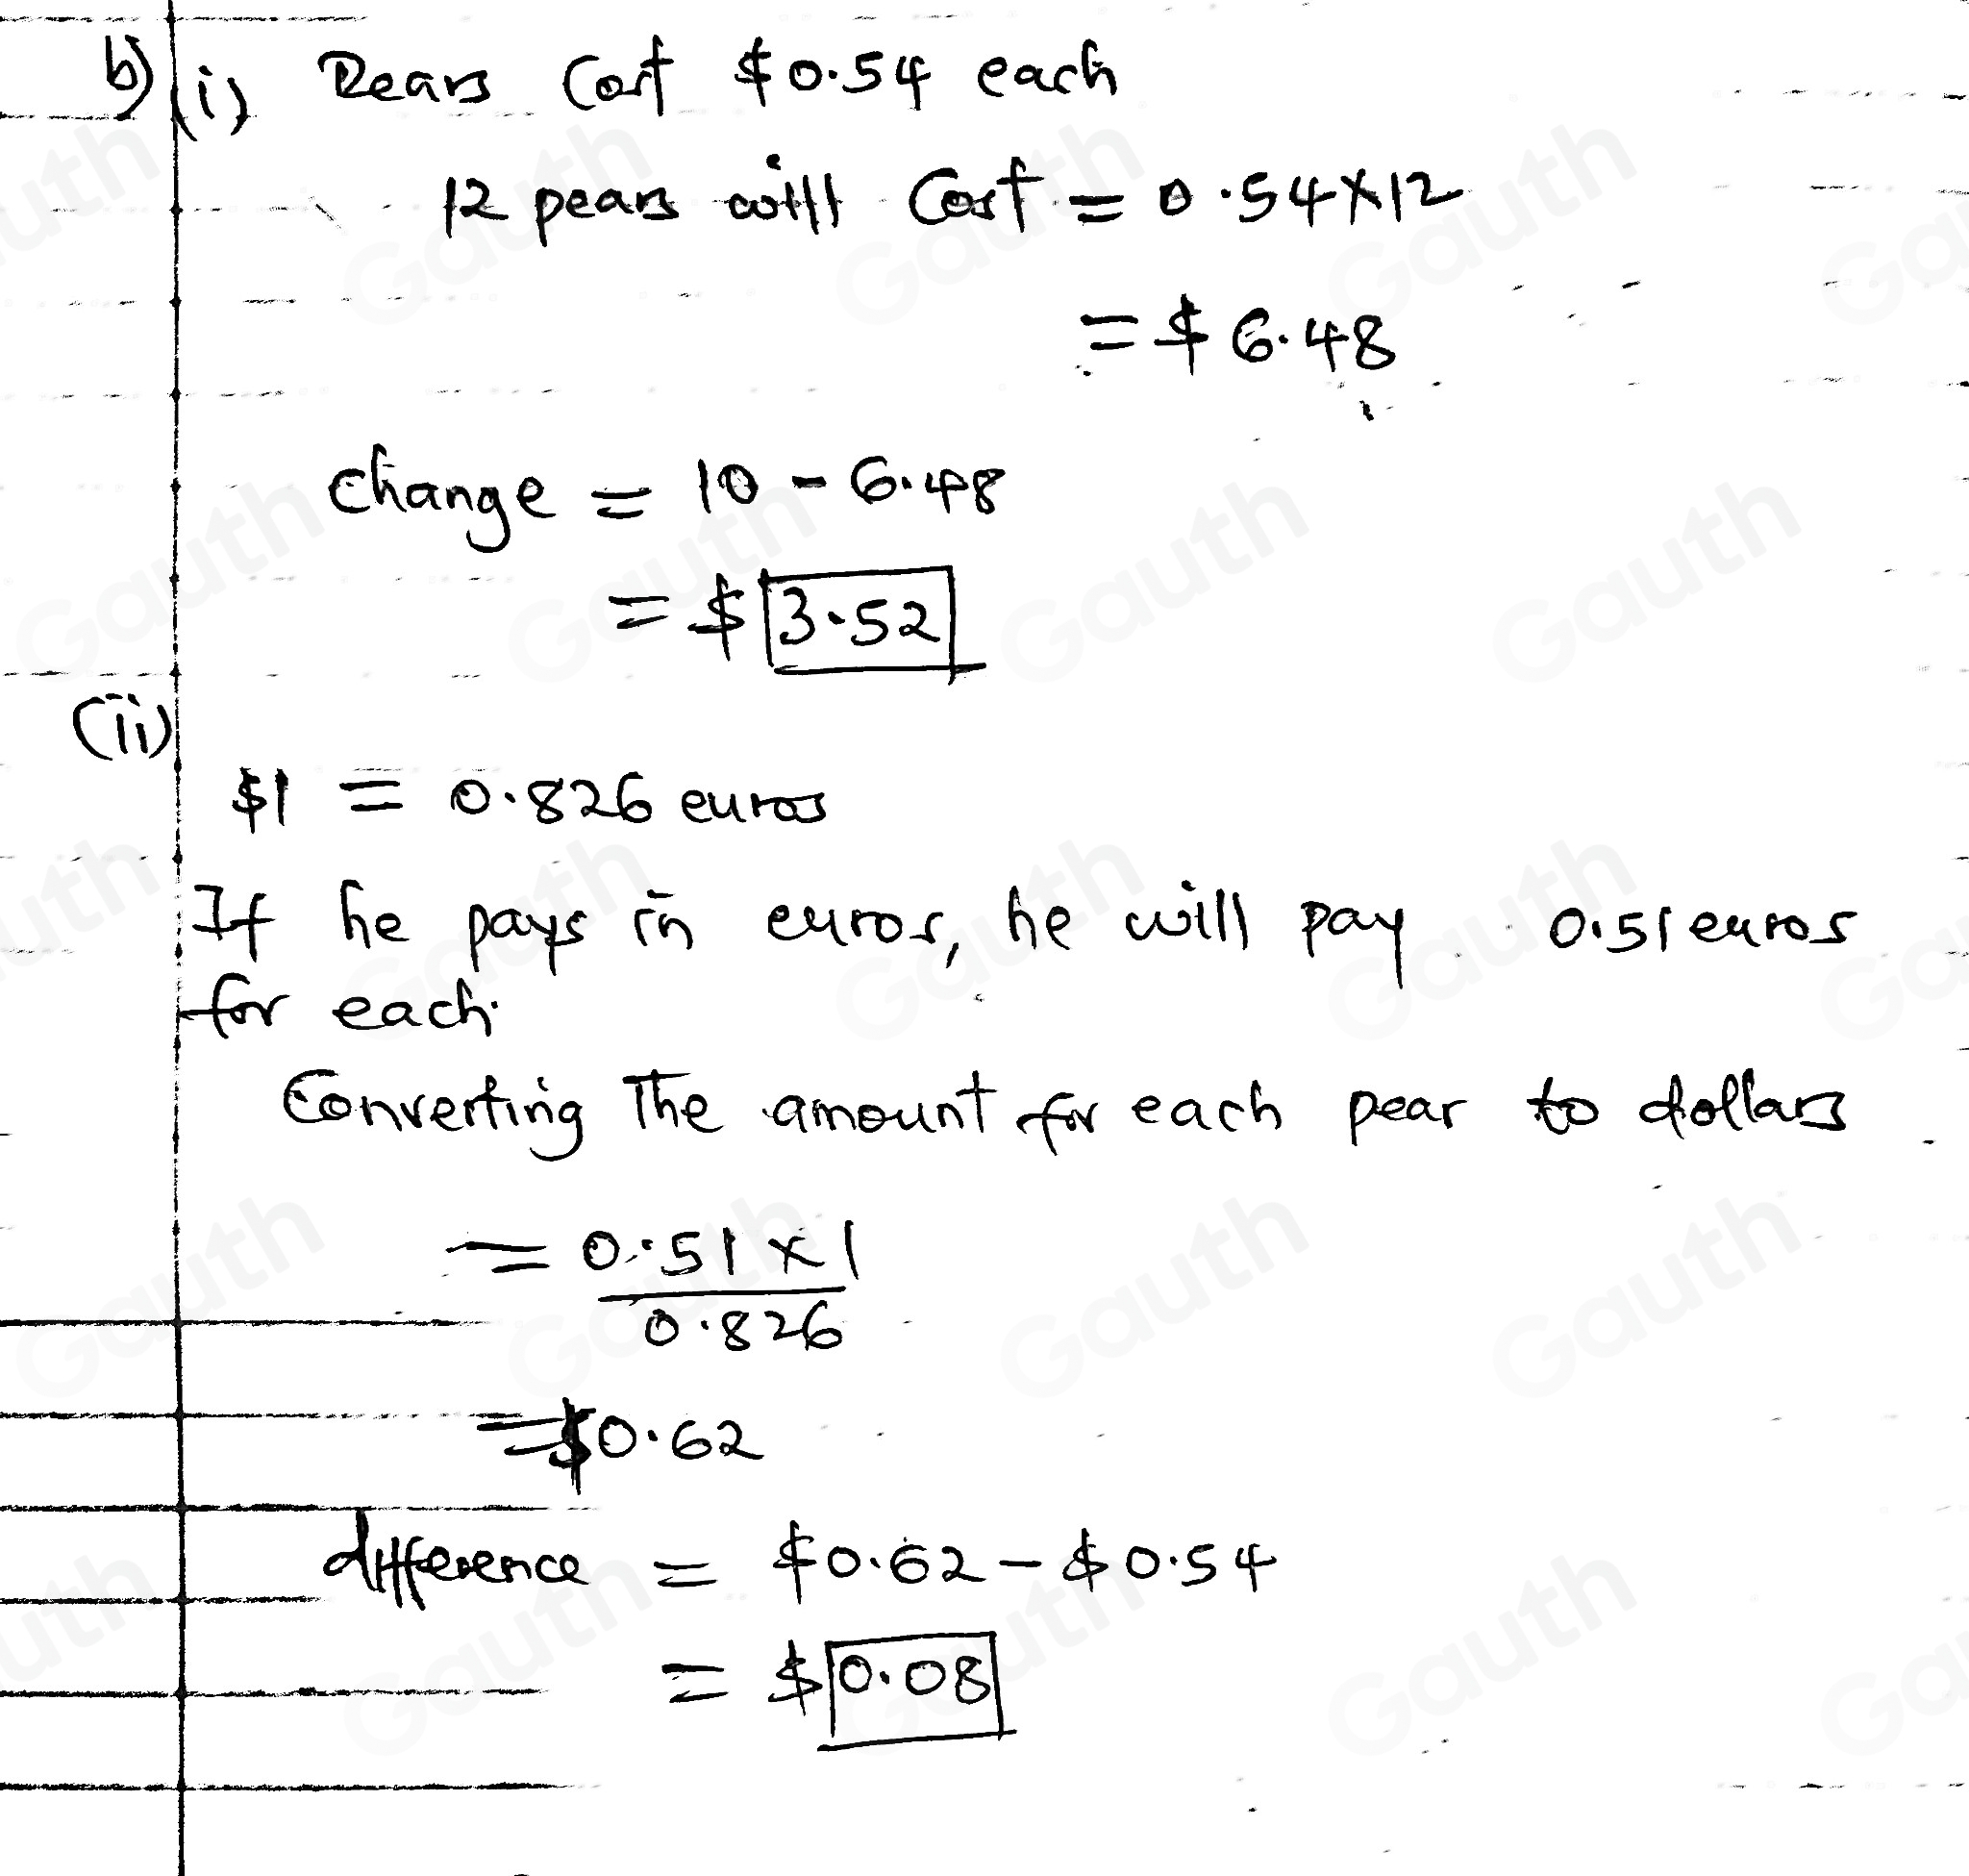 b) (i) Pears Cost $0.54 each
12 pears will Cost = 0.54×12
= $6.48
change = 10 - 6.48
= $ 3.52
(ii)
$1 = 0.826 euros
If he pays in euros, he will pay 0.51 euros
for each.
Converting The amount for each pear to dollars
= 0.51 × 1
0.826
= $0.62
difference = $0.62 - $0.54
= $ 0.08
Gauth